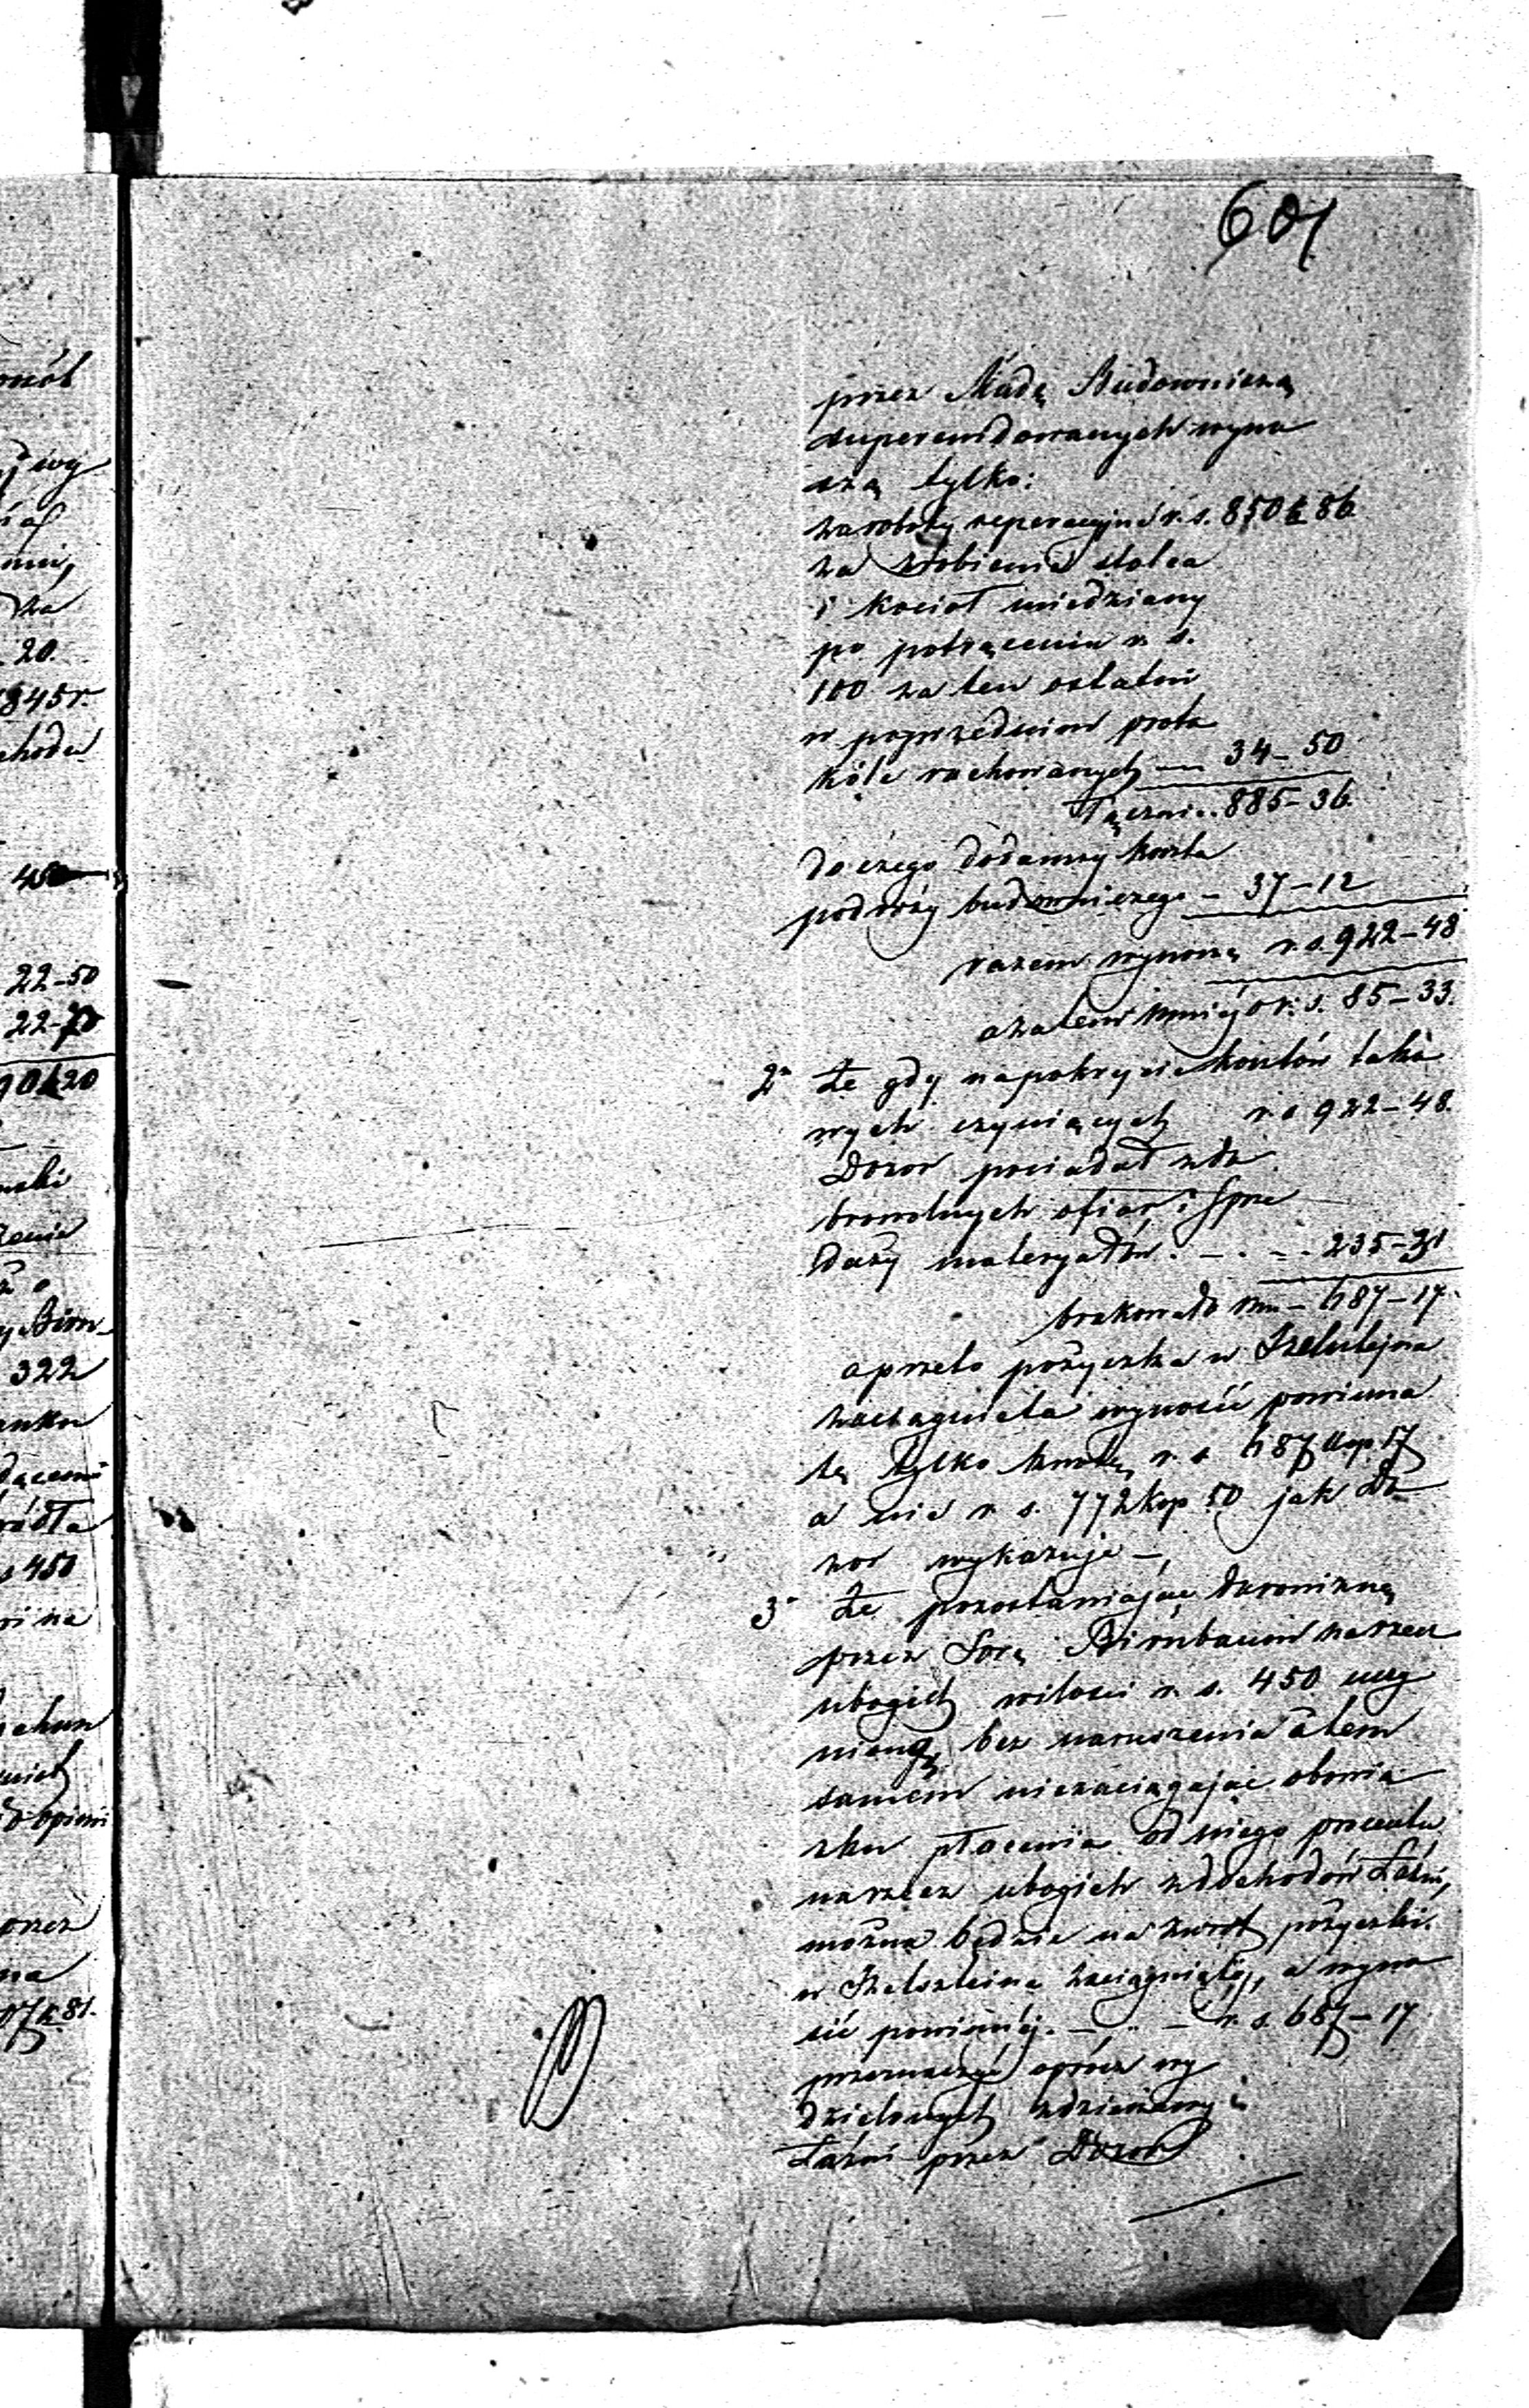 601
przez Radę Budowniczą
superewidowanych wyno
szą tylko:
za roboty reperacyjne r. s. 850 k 86
za zrobienie stolca
i kocioł miedziany
po potrąceniu r. s.
100 za ten ostatni
w poprzednim proto
kóle rachowanych — 34–50
Łącznie.. 885–36.
do czego dodawszy koszta
podróży budowniczego – 37–12
razem wynoszą r. s. 922–48
a zatem mniej o r. s. 85–33.
2o że gdy na pokrycie kosztów tako
wych czyniących r. s 922–48.
Dozor posiadał z do
browolnych ofiar i sprze
daży materyałów. – . – . 235–31
brakowało mu – 687–17.
a przeto pożyczka u
zaciągnięta wynosić powinna
tę tylko kwotę r. s 687 kop. 17
a nie r. s. 772 kop. 50 jak Do
zor wykazuje –,
3o że pozostawiając darowizną
przez Sorę Birnbaum na rzecz
ubogich w ilości r. s. 450 uczy
nioną, bez naruszenia a tem
samem nie zaciągając obowią
zku płacenia od niego procentu
na rzecz ubogich z dochodów Łaźni,
można będzie na zwrot pożyczki
u zaciągniętej, a wyno
sić powinnej. – . . – r. s. 687–17
przeznaczyć oprócz wy
dzielonych z dzierżawy
Łaźni przez Dozor
onób
wy
mi,
za
20.
1845 r.
chodu
450
22–50
22–70
90 k 20
ski
żenie
Birn
322
dącemu
450
na
przez
na
07 k 81.